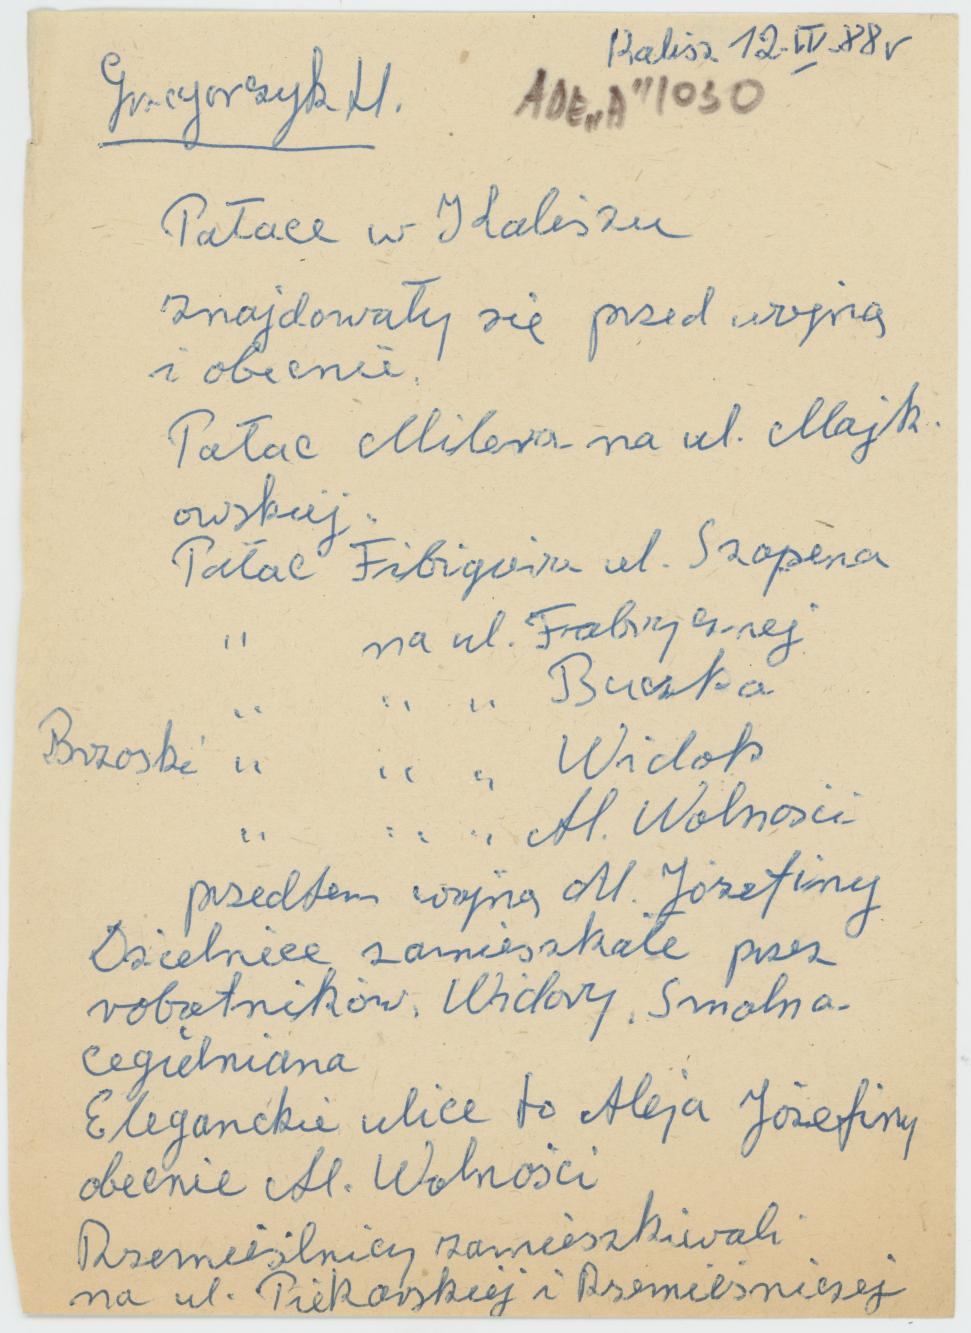 Kalisz 12.IV.88r
Gregorszyk M.
ADE "A"/1030
Pałace w Kaliszu
znajdowały się przed wojną
i obecnie.
Pałac Milera na ul. Majk.
owskiej.
Pałac Fibigera ul. Szopena
" na ul. Fabrycznej
" " " Buczka
Brzoski " " " Widok
" " " Al. Wolności
przedtem wojną Al. Józefiny
Dzielnice zamieszkałe przez
robotników. Widovy, Smolna
Cegielniana
Eleganckie ulice to Aleja Józefiny
obecnie Al. Wolności
Rzemieślnicy zamieszkiwali
na ul. Piekarskiej i Rzemieśniczej